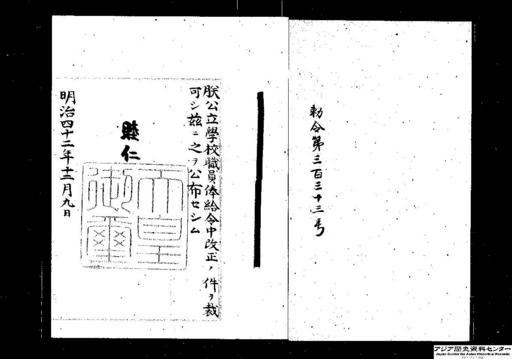 勅令第三百三十三号
朕公立學校職員俸給令中改正ノ件ヲ裁
可シ茲ニ之ヲ公布セシム
睦仁
天皇
御璽
明治四十二年十二月九日
アジア歴史資料センター
Japan Center for Asian Historical Records